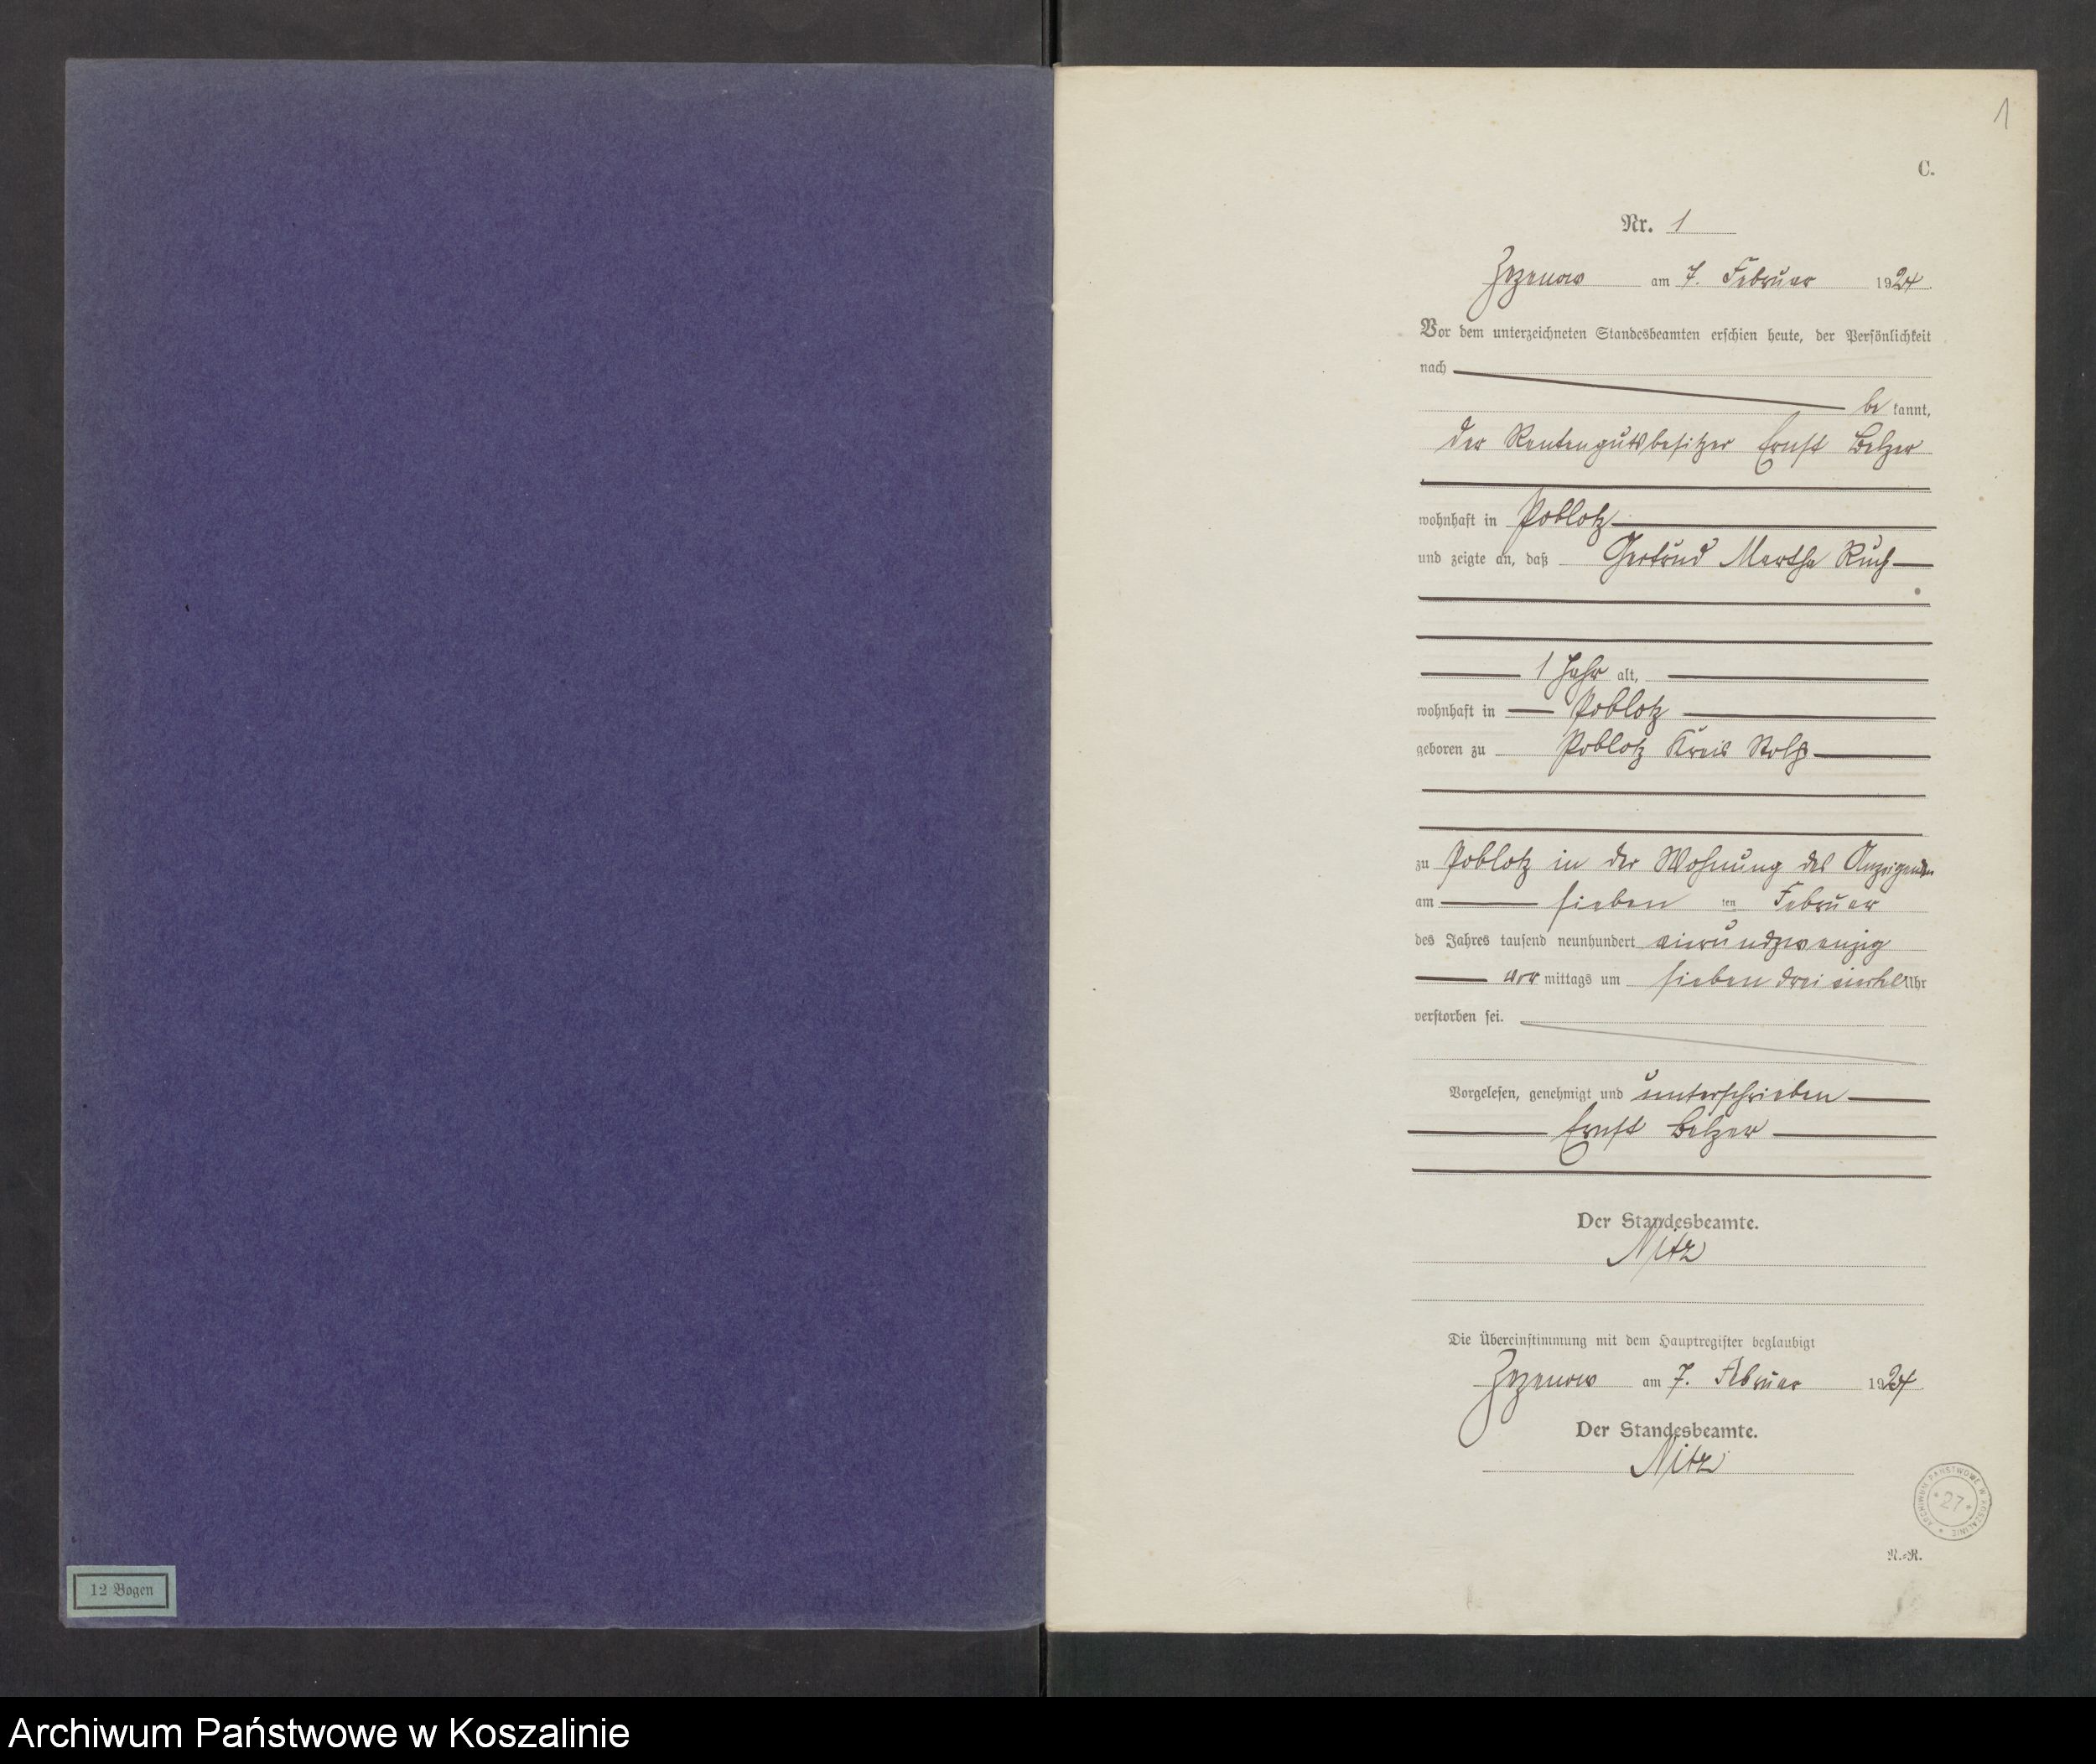 1
C.
Nr. 1
Zezenow am 7. Februar 1924
Vor dem unterzeichneten Standesbeamten erschien heute, der Persönlichkeit
nach
be kannt,
der Rentengutsbesitzer Ernst Belzer
wohnhaft in Poblotz
und zeigte an, daß Gertrud Martha Ruch
1 Jahr alt,
wohnhaft in Poblotz
geboren zu Poblotz Kreis Stolp
zu Poblotz in der Wohnung des Anzeigenden
am sieben ten Februar
des Jahres tausend neunhundert vierundzwanzig
vor mittags um sieben drei viertel Uhr
verstorben sei.
Vorgelesen, genehmigt und unterschrieben
Ernst Belzer
Der Standesbeamte.
Nitz
Die Übereinstimmung mit dem Hauptregister beglaubigt
Zezenow am 7. Februar 1924
Der Standesbeamte.
Nitz
ARCHIWUM PAŃSTWOWE W KOSZALINIE
* 27 *
R.=R.
12 Bogen
Archiwum Państwowe w Koszalinie